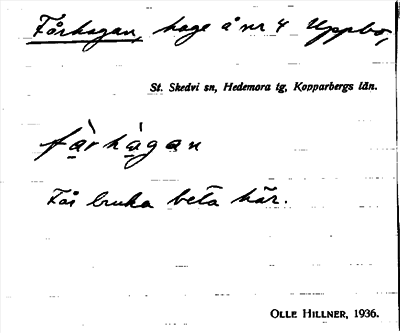 Fårhagan, hage å nr 4 Uppbo,
St. Skedvi sn, Hedemora tg, Kopparbergs län.
fà̱rhà̱ga̱n
Får bruka beta här.
OLLE HILLNER, 1936.